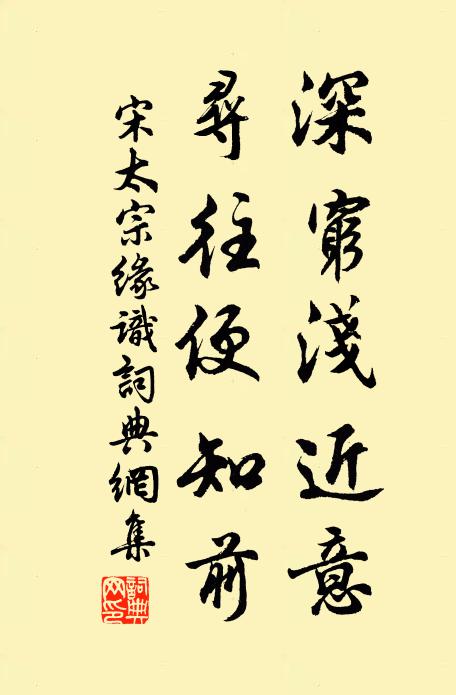 深窮淺近意
尋往便知前
宋太宗緣識詞典網集
詞典网印